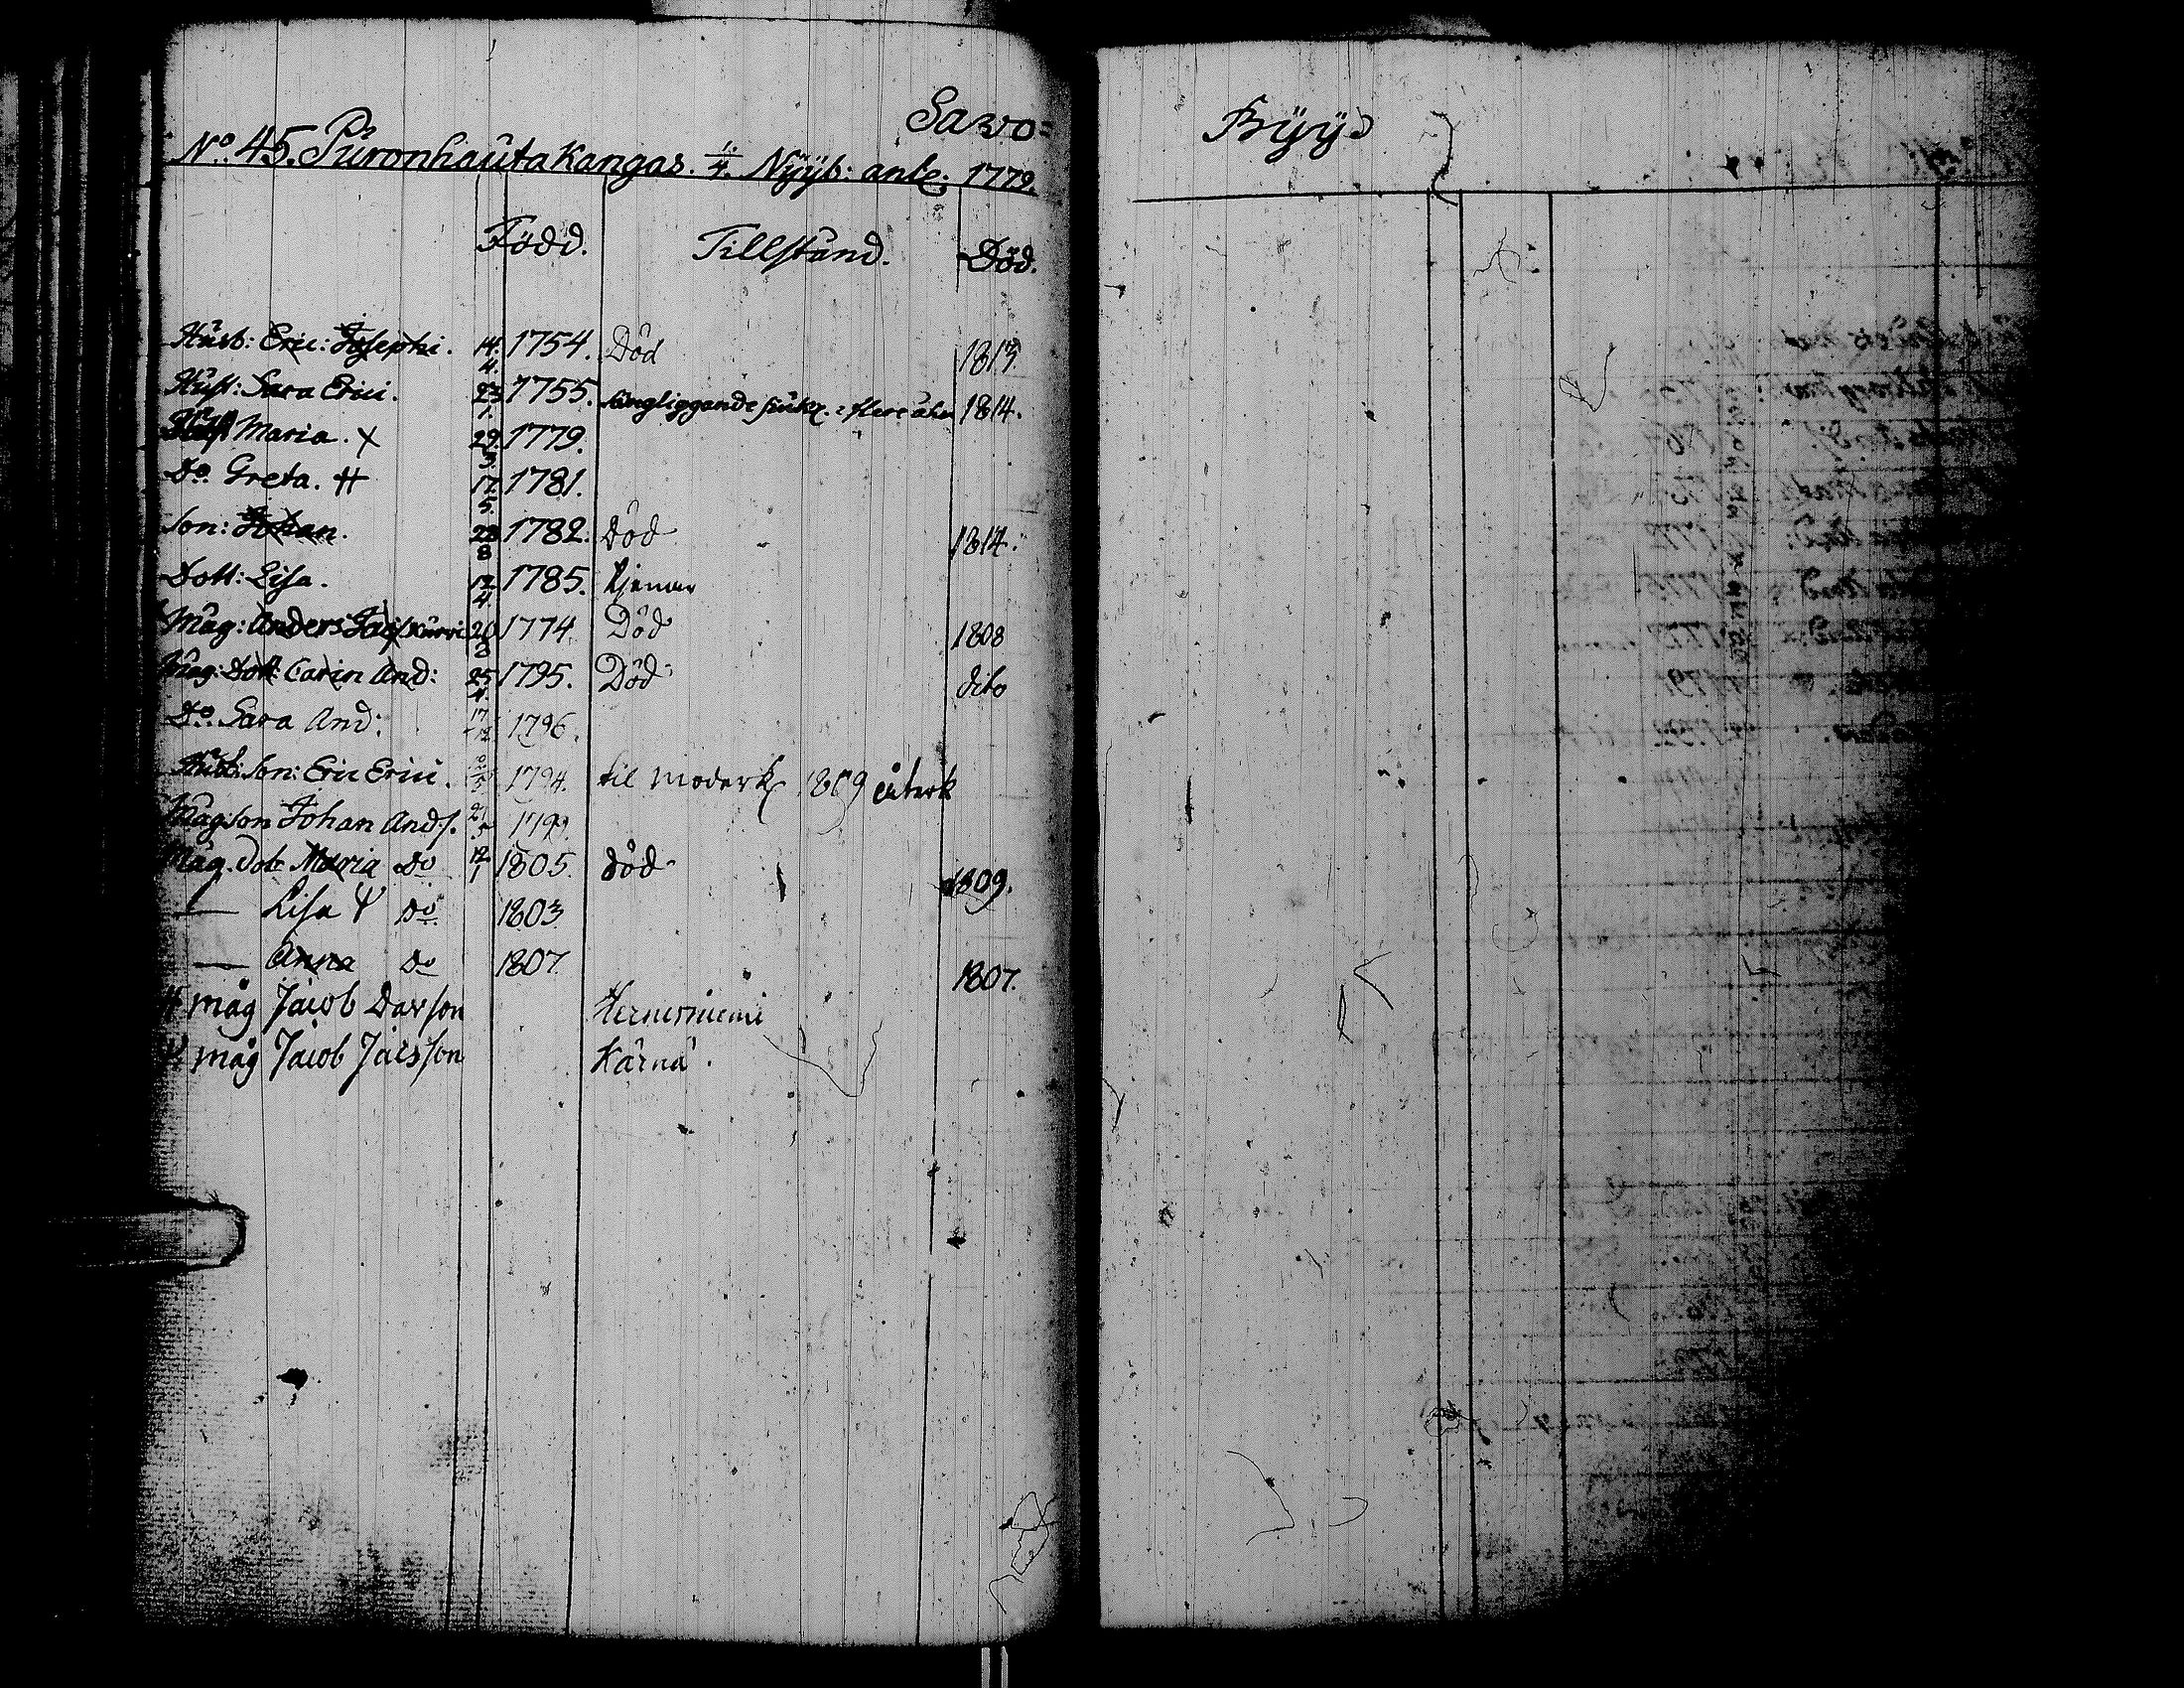 Sawo=
No. 45. Puronhauta Kangas. 1/4. Nÿÿb: anle: 1779.
Född. Tillstånd. Död.
Husb: Eric: Josephi. 14/4. 1754. Död 1813.
Hust: Sara Erici. 23/1. 1755. Sängliggande siuk flere åhr 1814.
Maria. X 29/3. 1779.
Do. Greta. # 17/5. 1781.
Son: Johan. 28/8 1782. Död 1814.
Dott: Lisa. 12/4. 1785. tjenar
Måg: Anders 20 1774. Död 1808
Måg: Dott: Carin And: 25/4. 1795. Död dito
Do. Sara And: 17/12 1796.
Husb: Son: Eric Erici. 1794. til Moderk 1809 återk
Mågson Johan Ands. 21/5 179
Måg. dott Maria Do 12/1 1805. död 1809.
— Lisa Do. 1803.
— Anna Do 1807. 1807.
måg Jacob Davson Herneniemi
måg Jacob Jacsson Kärnä.
Bÿÿd